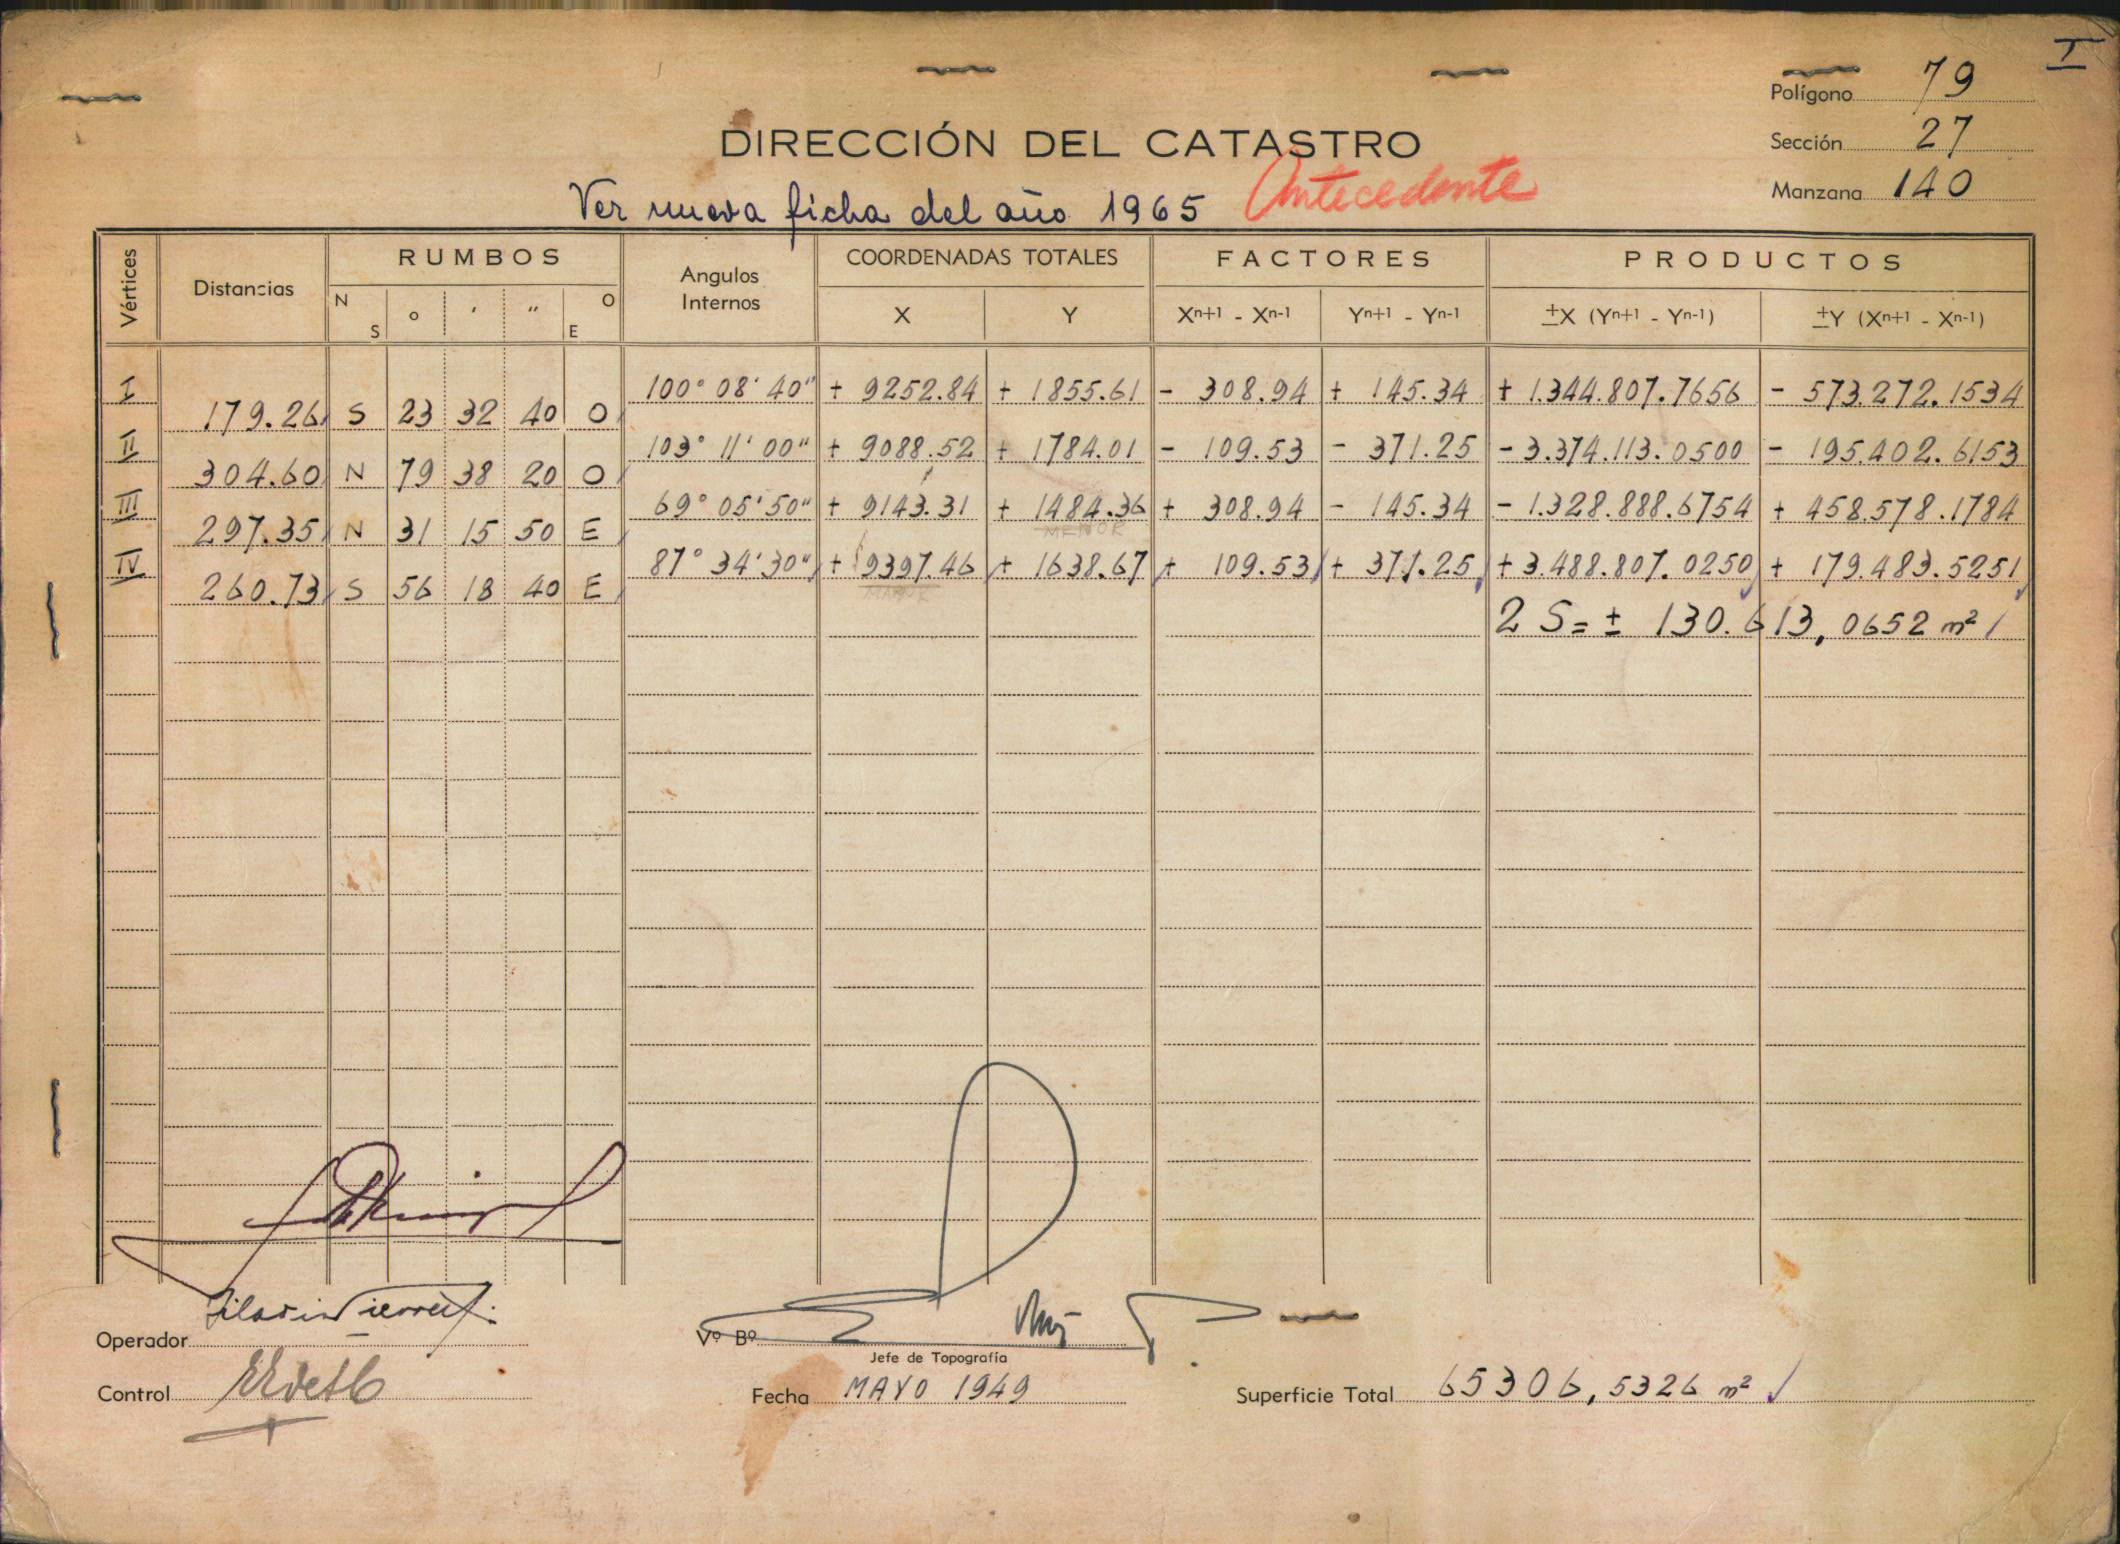 I
Polígono 79
DIRECCIÓN DEL CATASTRO
Sección 27
Ver nueva ficha del año 1965 Antecedente
Manzana 140
Vértices Distancias RUMBOS Angulos Internos COORDENADAS TOTALES FACTORES PRODUCTOS
N S ° ' " O E X Y Xn+1 - Xn-1 Yn+1 - Yn-1 ±X (Yn+1 - Yn-1) ±Y (Xn+1 - Xn-1)
I 100° 08' 40" + 9252.84 + 1855.61 - 308.94 + 145.34 + 1.344.807.7656 - 573.272.1534
179.26 S 23 32 40 O
II 103° 11' 00" + 9088.52 + 1784.01 - 109.53 - 371.25 - 3.374.113.0500 - 195.402.6153
304.60 N 79 38 20 O
III 69° 05' 50" + 9143.31 + 1484.36 + 308.94 - 145.34 - 1.328.888.6754 + 458.578.1784
MENOR
297.35 N 31 15 50 E
IV 87° 34' 30" + 9397.46 + 1638.67 + 109.53 + 371.25 + 3.488.807.0250 + 179.483.5251
260.73 S 56 18 40 E
2 S = ± 130.613,0652 m²
Operador
Vº Bº
Jefe de Topografía
Control
Fecha MAYO 1949
Superficie Total 65306,5326 m²